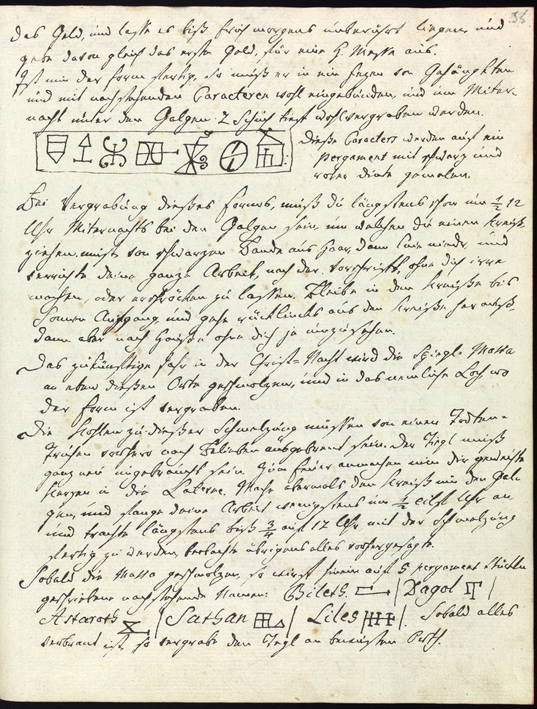 36.
das Geld, und lasse es biß früh morgens unberührt liegen, und
gebe davon gleich das erste Geld, für eine H. Messe aus.
Ist nun der Form fertig, so muß er in ein Fezen von
und mit nachstehenden Caracteren wohl eingebunden, und um Miter-
nacht unter den Galgen 2 Schuh tief wohl vergraben werden.
Dieße Caracters werden auf ein
Pergament mit schwarz und
rother Dinte gemalen.
Bei Vergrabung dießes Forms, mußt du längstens schon um 1/2 12
Uhr Miternachts bei den Galgen sein, um welchen du einen Kreiß
ziehen must von schwarzen Bande aus Haar, dann knie nieder und
verrichte deine ganze Arbeit, nach der Vorschrift, ohne dich irre
machen, oder erschröcken zu lassen. Bleibe in den Kreiße bis
Sonnen Aufgang und gehe rücklincks aus den Kreiße heraus,
dann aber nach Hauße ohne dich je umzusehen.
Das zukünftige Jahr in der Christ-Nacht wird die Spiegl-Massa
an eben dießen Orte geschmolzen, und in das nemliche Loch wo
der Form ist vergraben.
Die Kohlen zu dießer Schmelzung müssen von einer Todten-
Truhen vorhero nach Belieben ausgebrent sein. Der Tiegl muß
ganz neu ungebraucht sein. Zum Feuer anmachen nim die geweihte
Kerzen in die Laterne. Mache abermals den Kreiß um den Gal-
gen, und fange deine Arbeit wenigstens um 1/2 eilf Uhr an
und trachte längstens biß 3/4 auf 12 Uhr mit der Schmelzung
fertig zu werden, beobachte übrigens alles vorhergesagte.
Sobald die Massa geschmolzen, so wirf hinein auf 5 Pergament Stückln
geschriebene nachstehende Namen: Bileth. | Dagol |
Astaroth | Sathan | Liles |. Sobald alles
verbrant ist, so vergrabe den Tiegl an Orth.